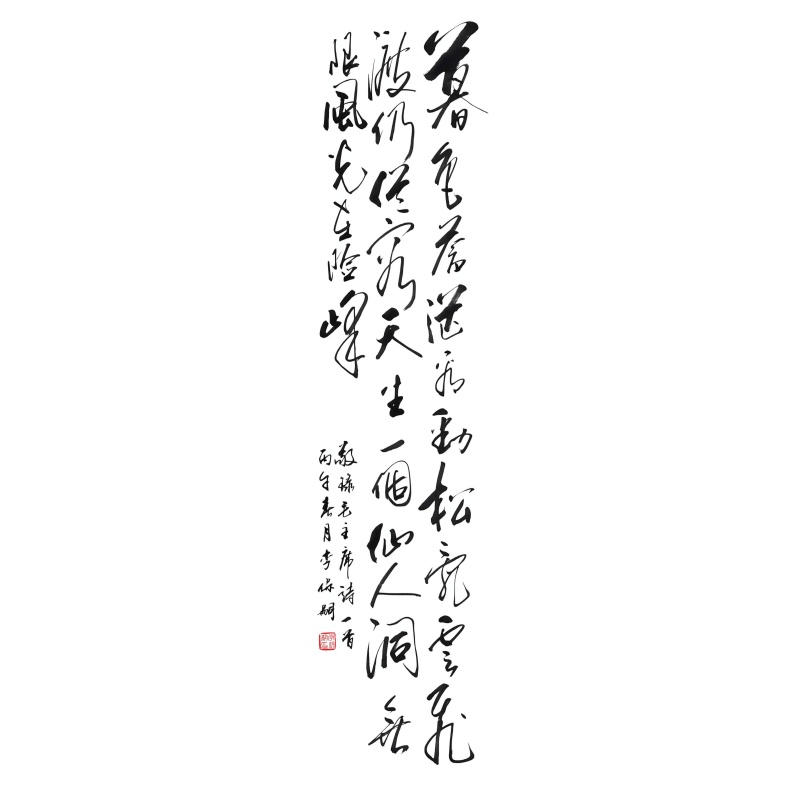 暮色蒼茫看勁松亂雲飛
渡仍從容天生一個仙人洞無
限風光在险峰
敬録毛主席詩一首
丙午春月李保嗣